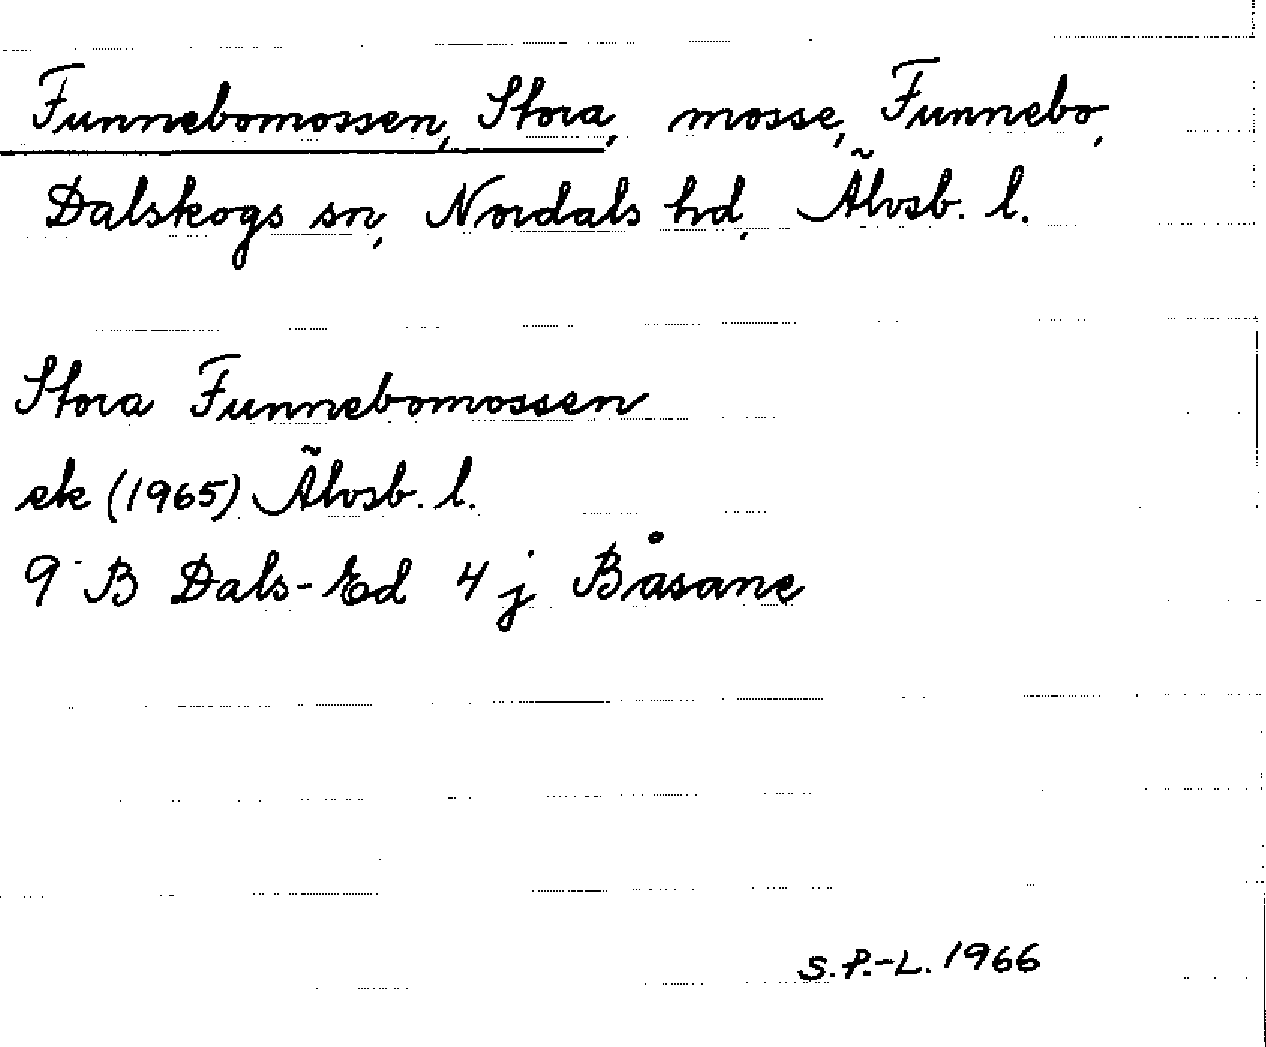 Funnebomossen, Stora, mosse, Funnebo,
Dalskogs sn, Nordals hd, Älvsb. l.
Stora Funnebomossen
ek (1965) Älvsb. l.
9 B Dals-Ed 4 j Båsane
S.P.-L. 1966